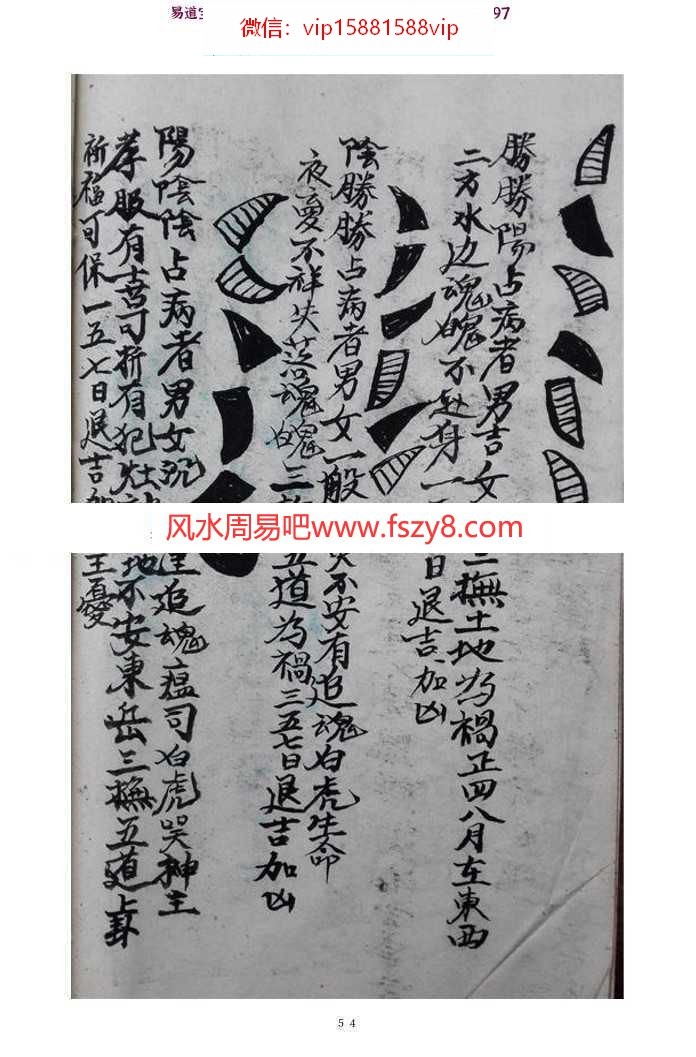 易道
97
微信：vip15881588vip
勝勝陽占病者男吉女
三撫土地为禍正四八月在東西
二方水边魂魄不赴身一
日退吉加凶
陰勝勝占病者男女一般
不安有追魂白虎生命
夜夢不祥失落魂魄三
五道为禍三五七日退吉加凶
陽陰陰占病者男女沉
追魂瘟司白虎哭神主
孝服有喜可折有犯灶
地不安東岳三撫五道上卦
祈福可保一五七日退吉加
主憂
风水周易吧www.fszy8.com
54